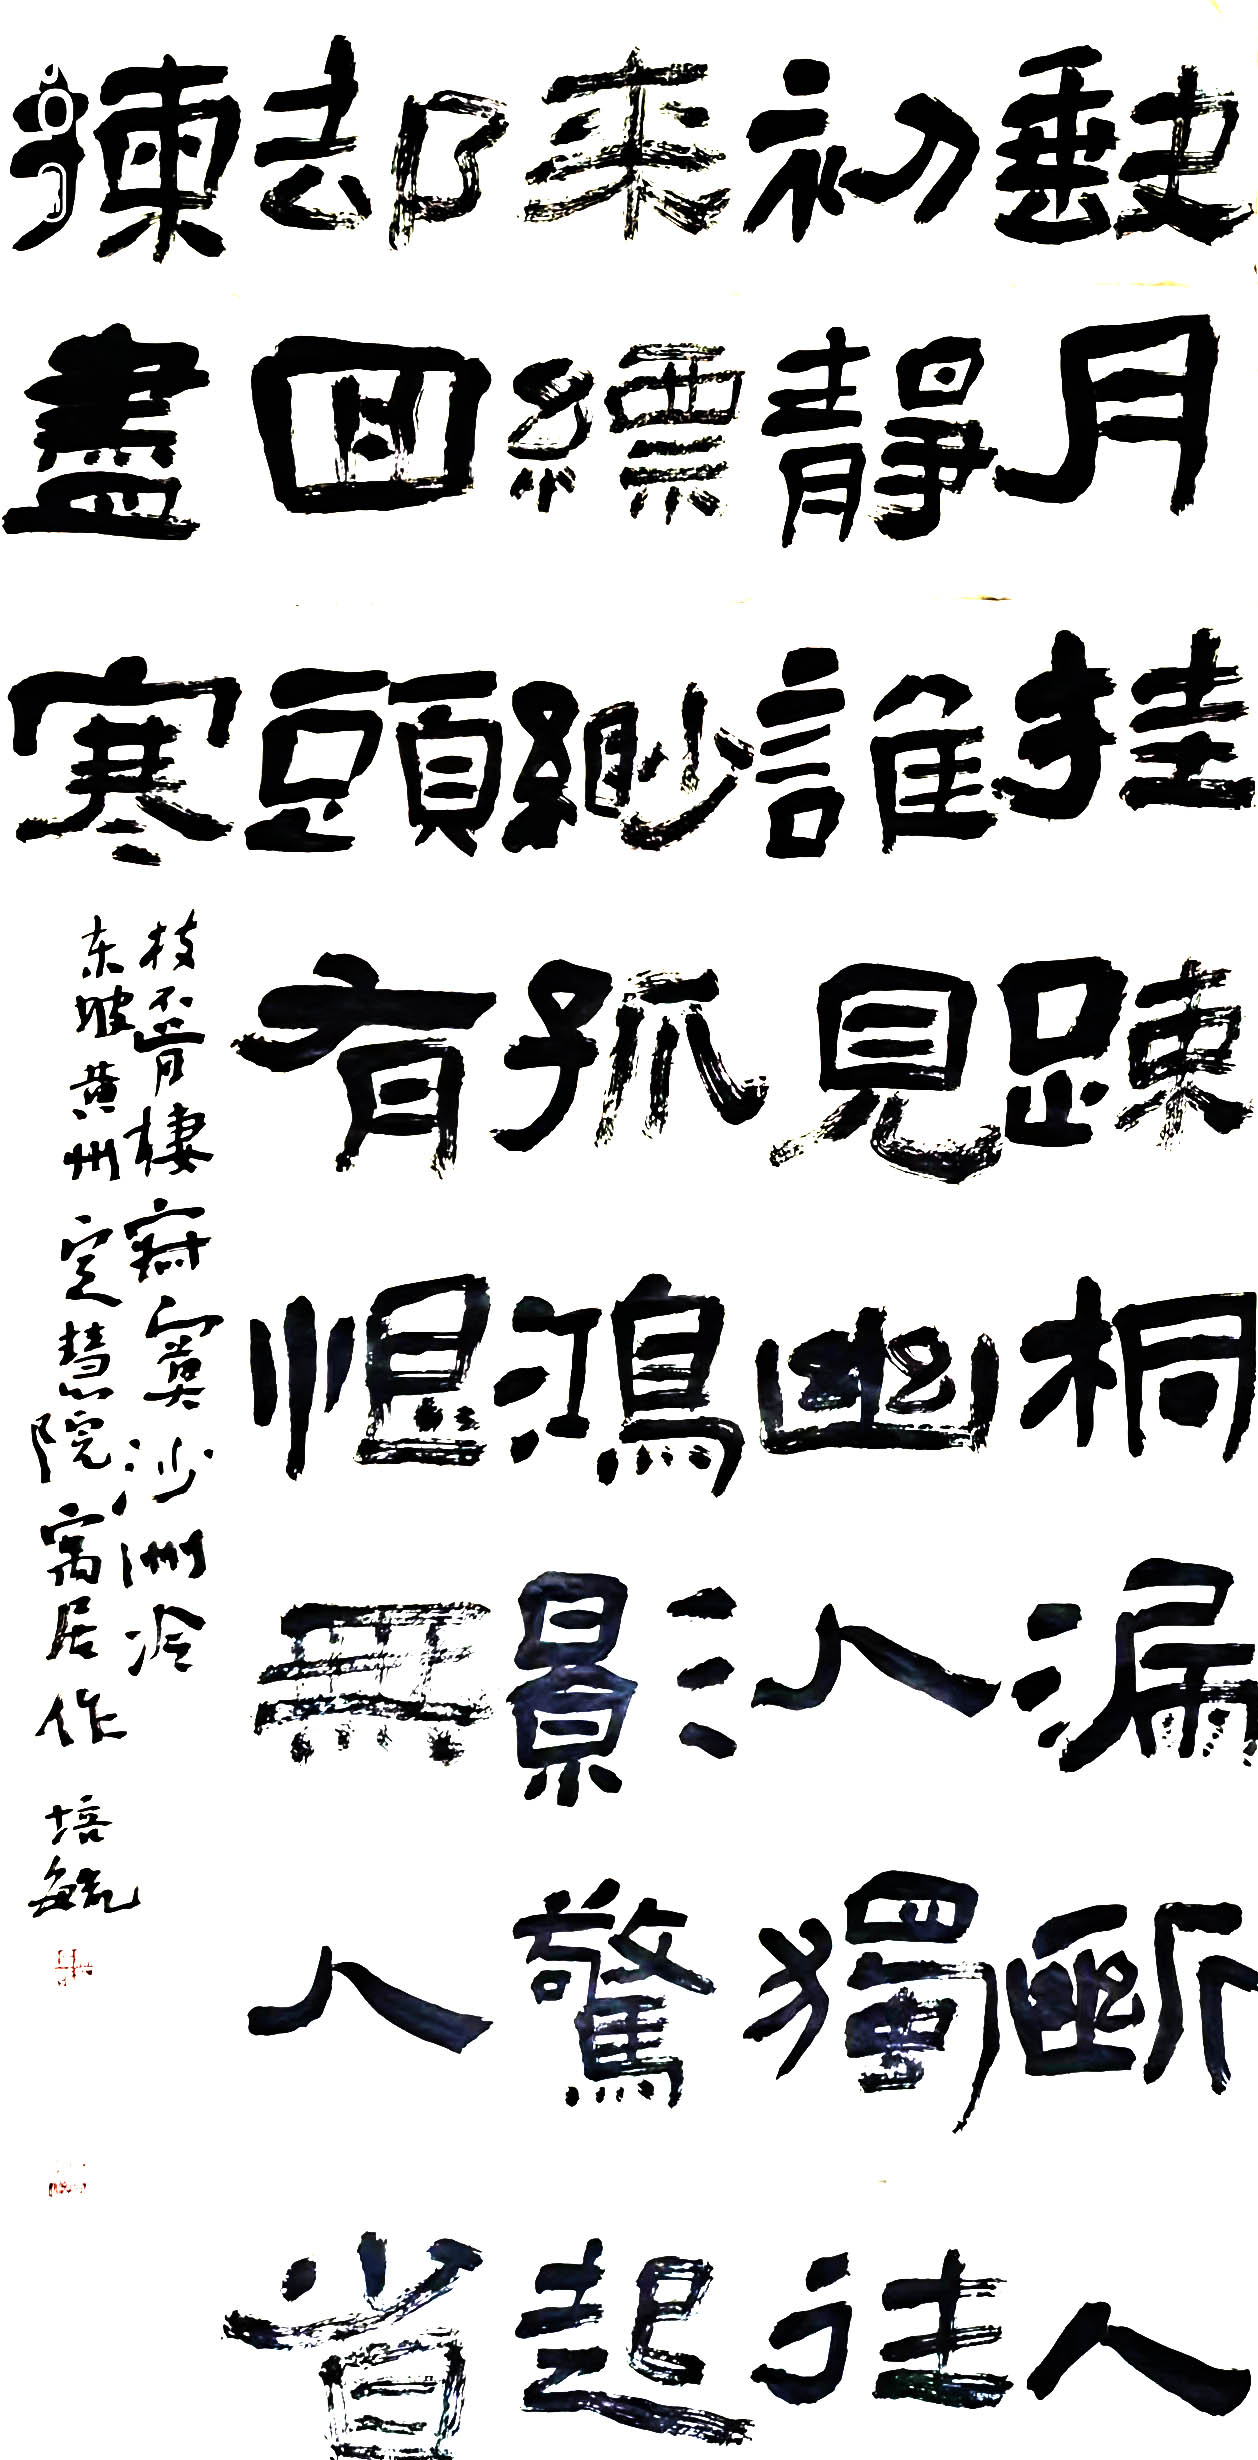 缺月挂踈桐漏斷人
初靜誰見幽人獨往
来縹緲孤鴻影驚起
却回頭有恨無人省
揀盡寒
枝不肯棲寂寞沙洲冷
东坡黄州定慧院寓居作 培毓